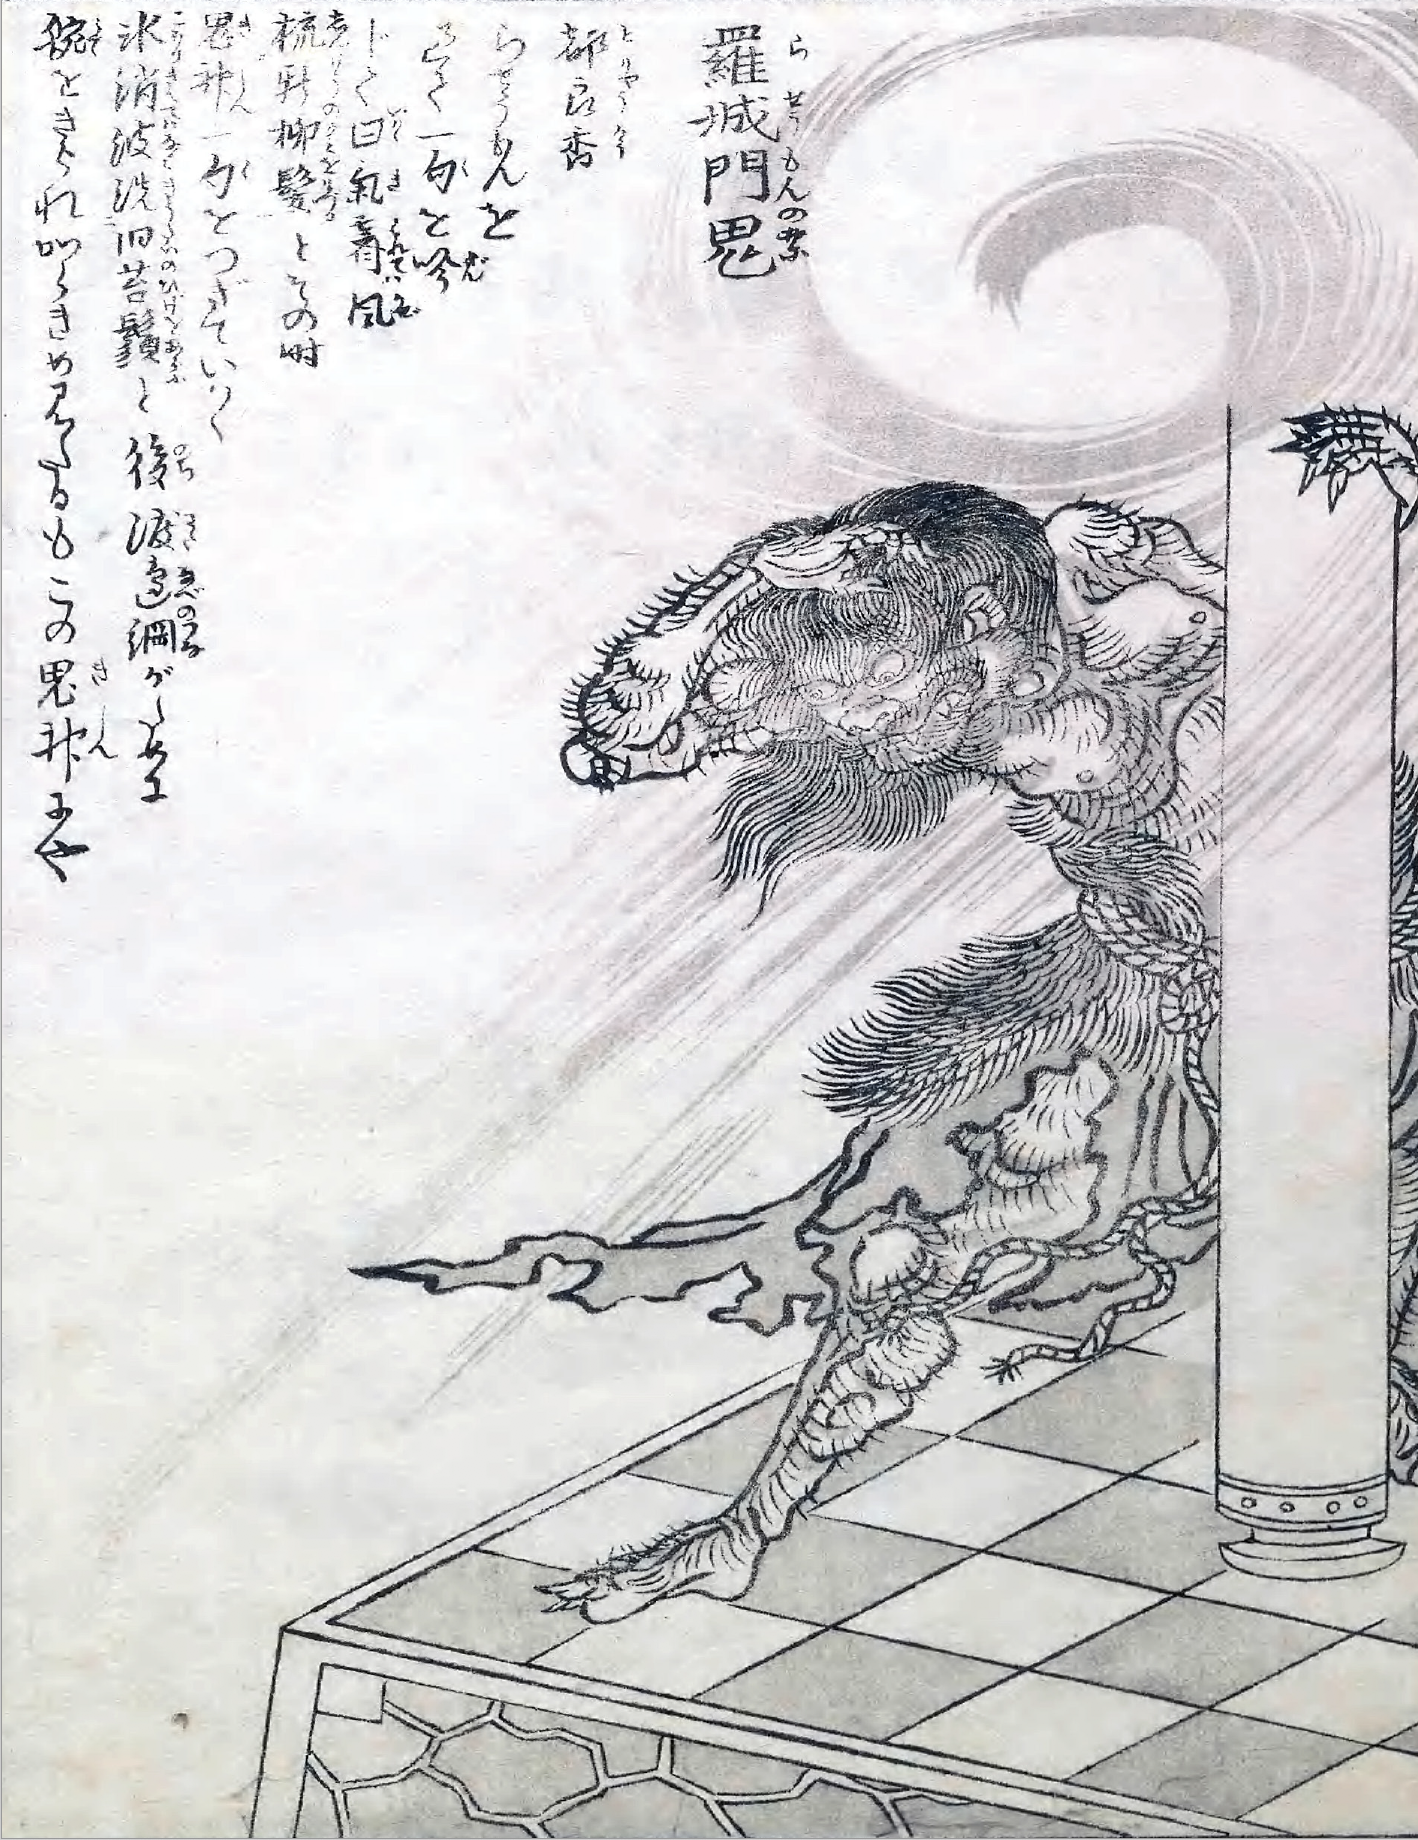 羅城門鬼
都良香
らせうもんを
過て一句を吟
じて曰氣霽風
梳新柳髪とその時
鬼神一句をつぎていはく
氷消波洗旧苔鬚と後渡邉綱がために
腕をきられからきめ見たるもこの鬼神にや